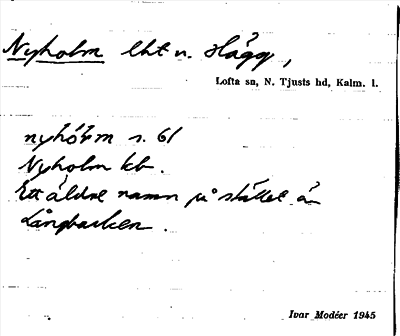 Nyholm lht u. Hägg,
Lofta sn, N. Tjusts hd, Kalm. l.
nyhólm s. 61
Nyholm kb.
Ett äldre namn på stället är
Långbacken.
Ivar Modéer 1945